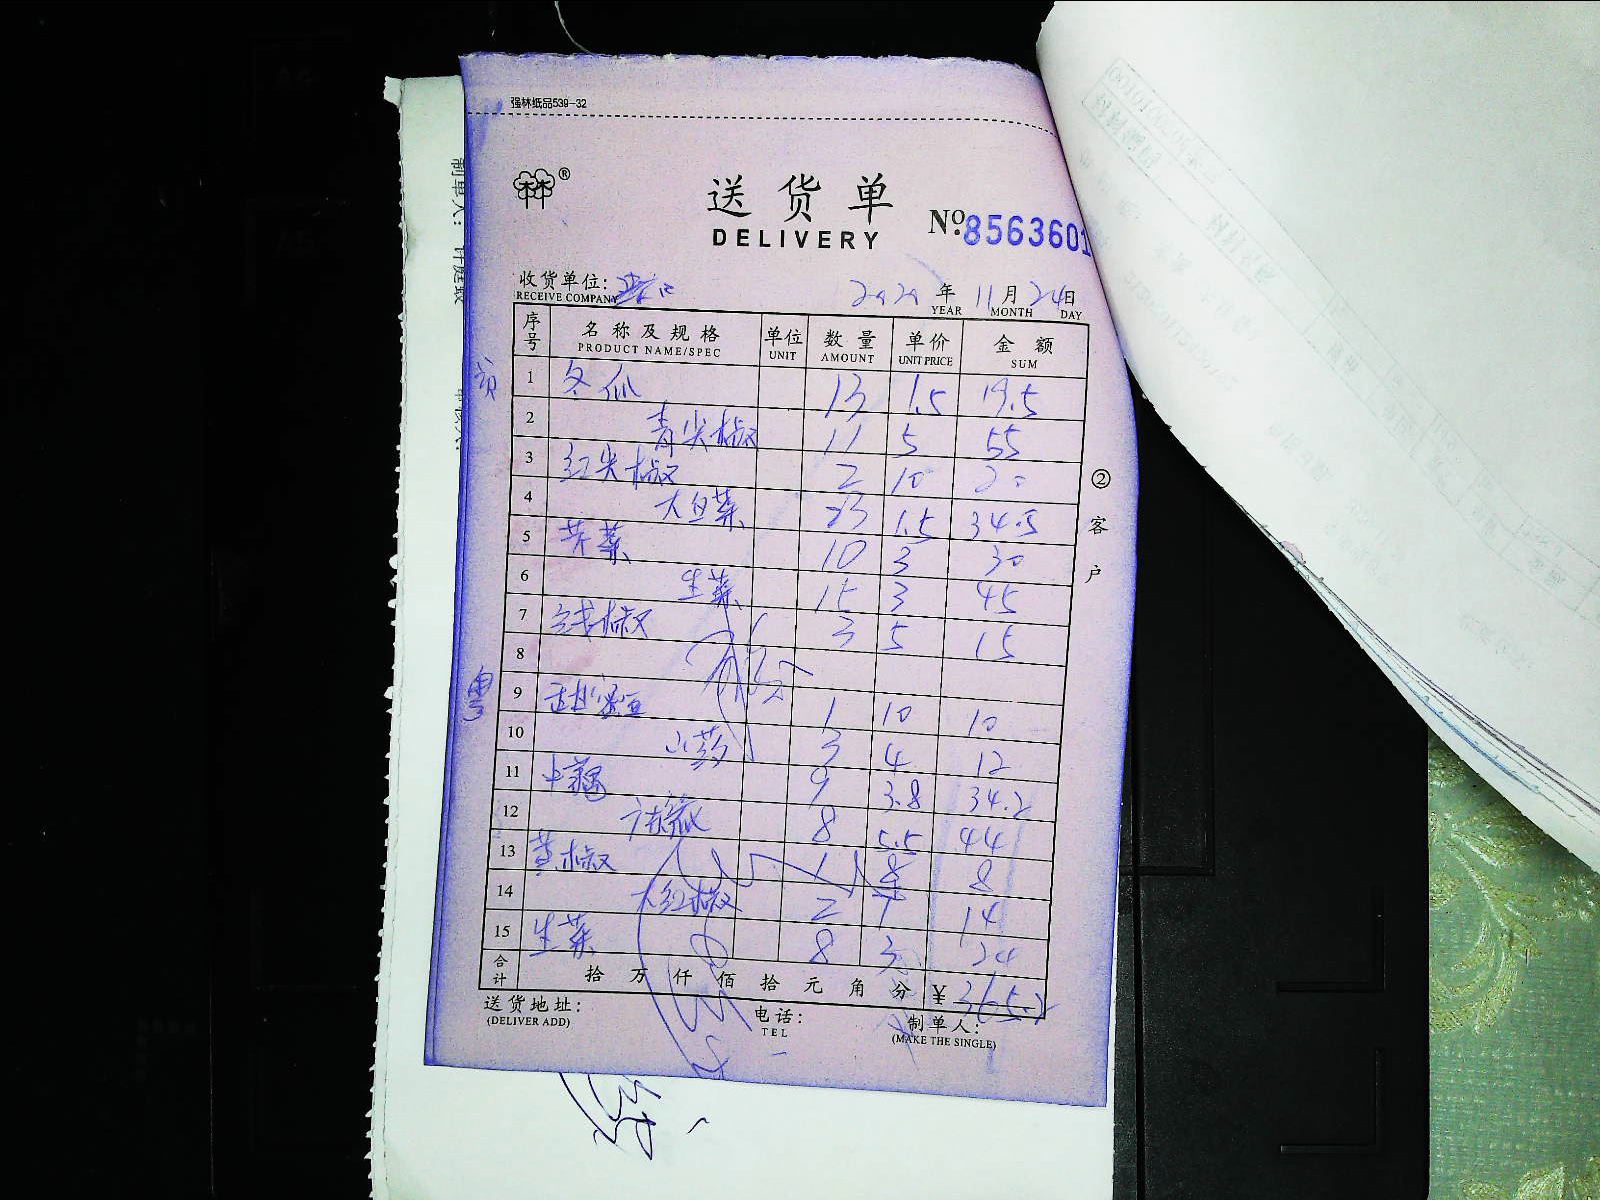 强林纸品539-32
送货单
DELIVERY
№:8563601
收货单位:
RECEIVE COMPANY
2020年11月24日
YEAR MONTH DAY
序号 名称及规格 单位 数量 单价 金额
PRODUCT NAME/SPEC UNIT AMOUNT UNIT PRICE SUM
1 冬瓜 13 1.5 19.5
2 青尖椒 11 5 55
3 红尖椒 2 10 20
4 大白菜 23 1.5 34.5
5 芹菜 10 3 30
6 生菜 15 3 45
7 线椒 3 5 15
8
9 1 10 10
10 山药 3 4 12
11 9 3.8 34.2
12 8 5.5 44
13 黄椒 1 8 8
14 大红椒 2 7 14
15 生菜 8 3 24
合计 拾 万 仟 佰 拾 元 角 分 ¥365.2
送货地址:
(DELIVER ADD)
电话:
TEL
制单人:
(MAKE THE SINGLE)
②客户
制单人: